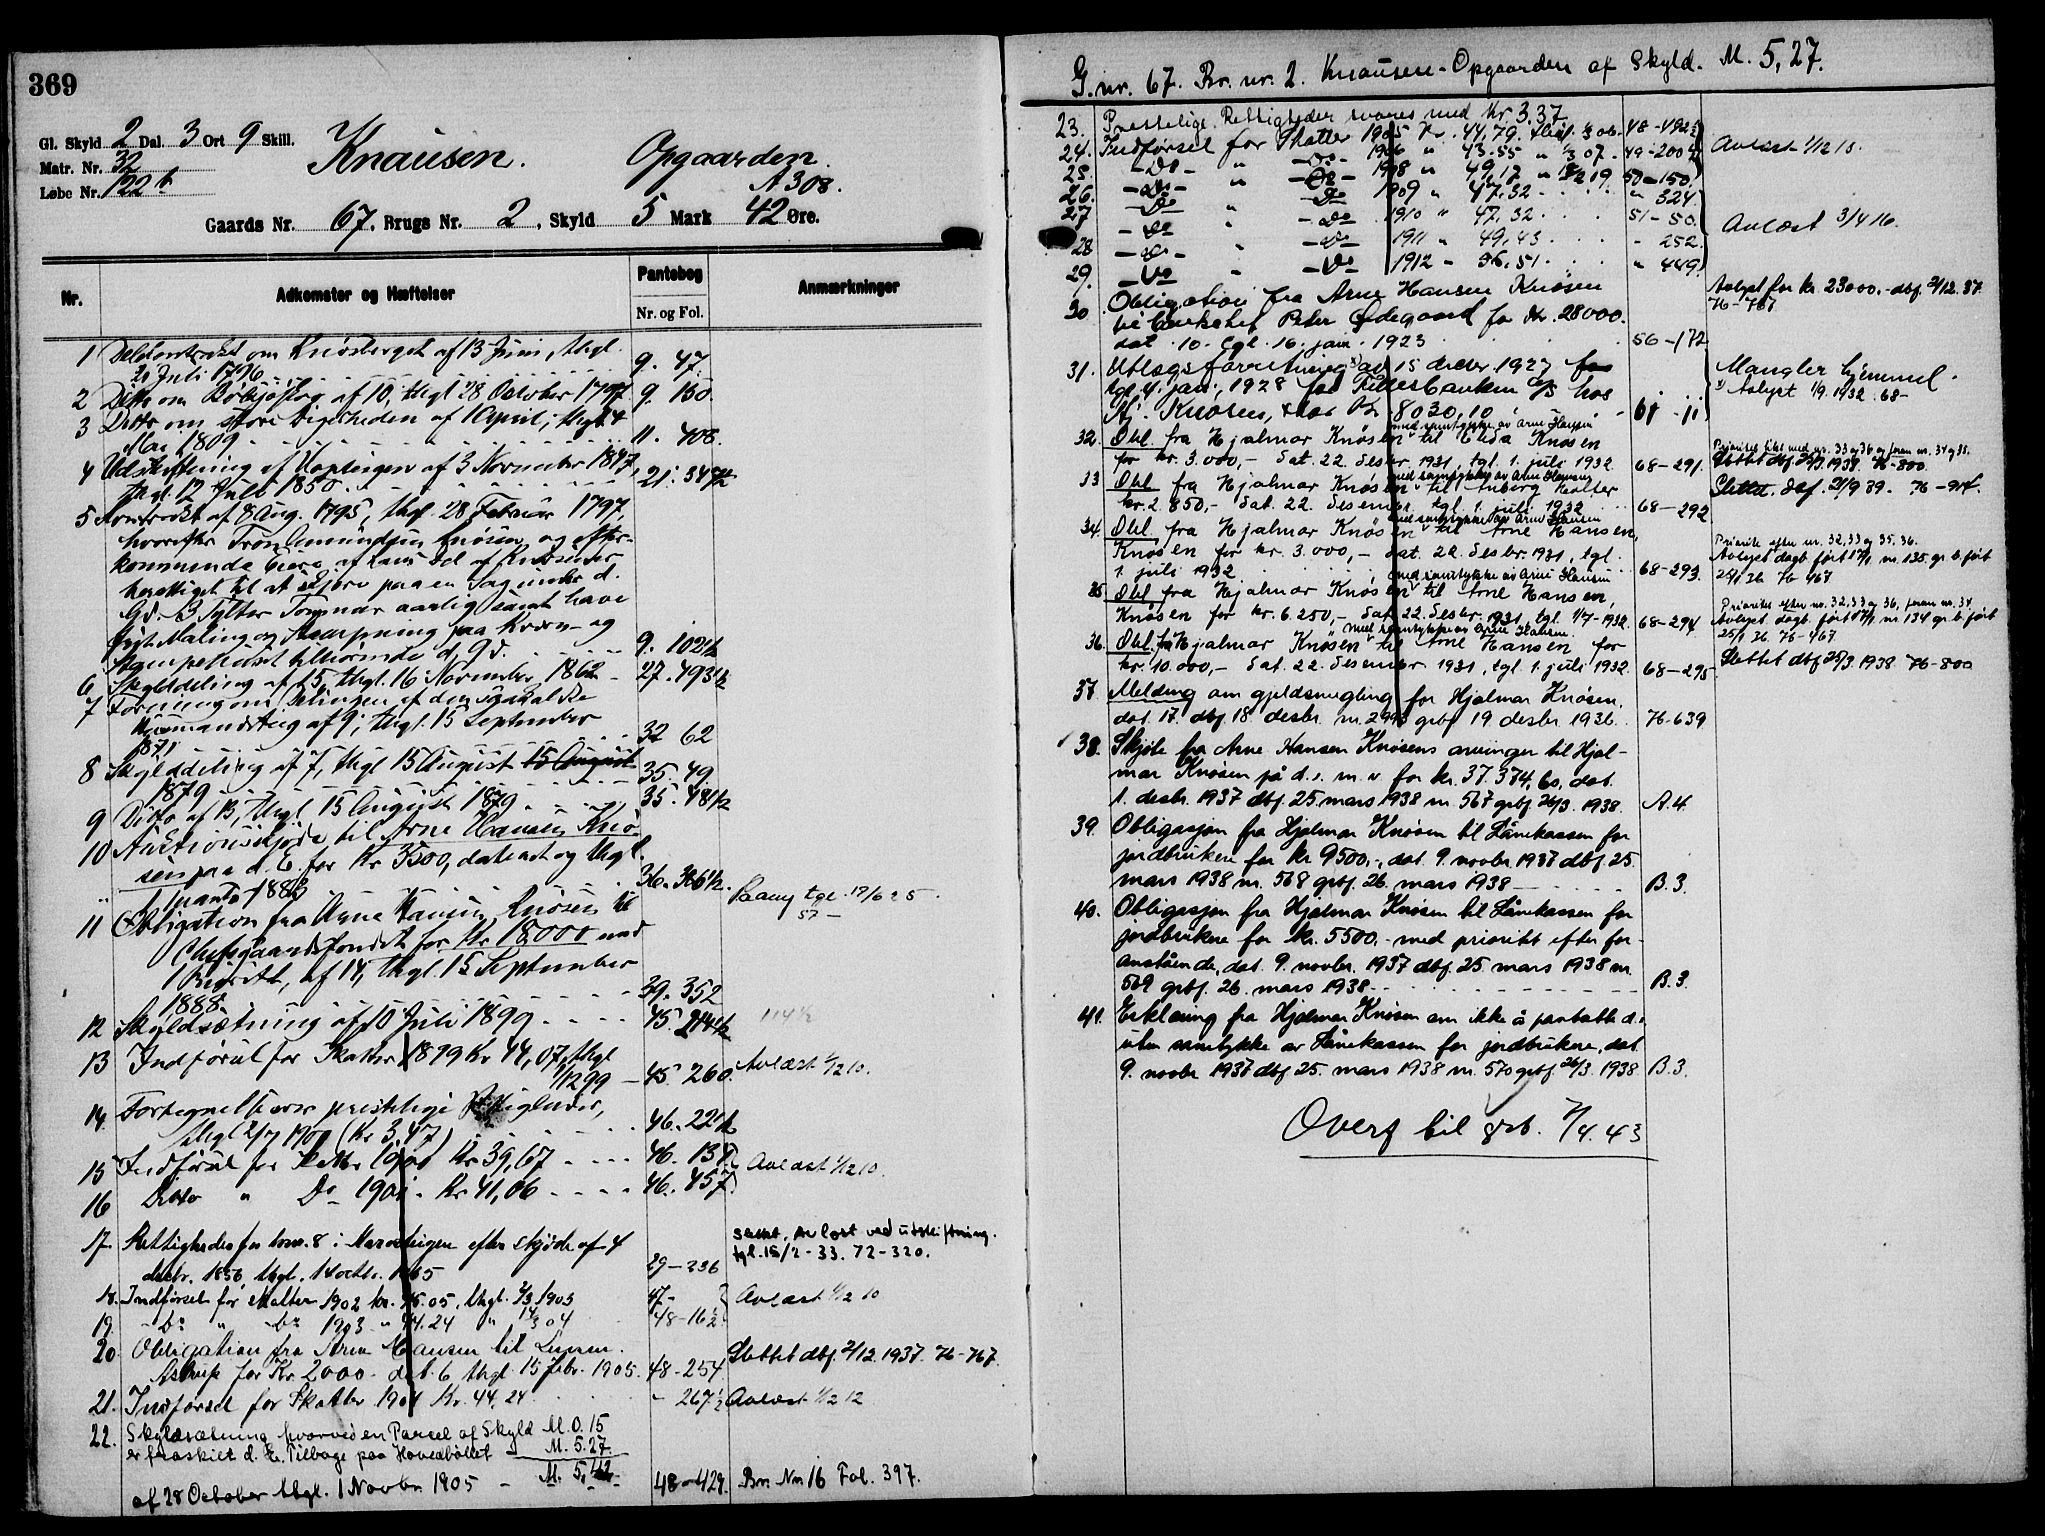 369
Gl. Skyld 2 Dal. 3 Ort 9 Skill.
Matr. Nr. 32
Løbe Nr. 122 b
Knausen. Opgaarden.
A 308.
Gaards Nr. 67. Brugs Nr. 2, Skyld 5 Mark 42 Øre.
Nr. Adkomster og Hæftelser Pantebog Nr. og Fol. Anmærkninger
1 om Knøsberget af 13 Juni, thgl.
21 Juli 1796 9. 47.
2 Ditto om af 10, thgl 28 October 1797 9. 130
3 Ditto om store af 1 April, thgl 4
Mai 1809 11. 408.
4 Udskiftning af af 3 November 1847,
thgl. 12 Juli 1850 21. 347½
5 Kontrakt af 8 Aug. 1795, thgl. 28 Februar 1797
hvorefter Tron Amundsen Knøsen og efter-
kommende Eiere af hans Del af Knøsen er
berettiget til at skjære paa en Sag under d.
Gd. 3 Tylter Tømmer aarlig samt have
frit Maling og paa Kværn- og
tilhørende d. Gd. 9. 102½
6 Skylddeling af 15, thgl. 16 November 1862 - 27. 493½
7 Forening om Delingen af den saakaldte
af 9, thgl. 15 September
1871 32 62
8 Skylddeling af 7, thgl 15 August 15 August
1879 35. 49
9 Ditto af 13, thgl. 15 August 1879 35. 48½
10 Auktionsskjøde til Arne Hansen Knø-
sen paa d. E. for Kr 3500, dateret og thgl.
1 1883 36. 366½. tgl. 17/6 25.
57 -
11 Obligation fra Arne Hansen Knøsen til
for Kr 18000 med
1 Priorit., af 14, thgl. 15 September
1888. 39. 352
12 Skyldsætning af 10 Juli 1899 45 214½ 114½
13 Indførsel for Skatter 1899 Kr 44,07, thgl
1/12 99 - 45. 260. Avlæst 1/12 10.
14. Fortegnelse over præstelige Rettigheder,
thgl 2/7 1900 (Kr 3,47) 46. 22½
15 Indførsel for Skatter 1900 Kr 39,67 46. 137
Avlæst 1/12 10.
16 Ditto " Do 1901 - Kr 41,06 46. 457
17. Rettigheder for brnr. 8 i efter skjøde af 4
decbr. 1856, thgl. 14 octbr. 1865 29 - 236 Slettet, avløst ved utskiftning.
tgl. 15/2 - 33. 72 - 320.
18. Indførsel for Skatter 1902 kr. 45.05, thgl. 1903 47 - Avlæst 1/12 10
19. - Do " - Do 1903 " 44.24 " 04 48 - 16½
20. Obligation fra Arne Hansen til
Astrup for Kr. 2000 - dat. 6 thgl. 15 febr. 1905. 48 - 254 Slettet dbf. 2/12. 1937. 76 - 767.
21. Indførsel for Skatter 1904 Kr. 44,24 - 267½ Avlæst 1/12 12
22. Skyldsætning hvorved en Parcel af Skyld M. 0.15
er fraskilt d. E. Tilbage paa Hovedbølet M. 5.27.
M. 5,42.
af 28 October thgl. 1 Novbr. 1905 - 48 - 429. Br. Nr. 16 Fol. 397.
G. nr. 67. Br. nr. 2. Knausen - Opgaarden af Skyld. M. 5,27.
23. Prestelige Rettigheder svares med Kr 3.37 48 - 492½
24. Indførsel for Skatter 1905 Kr. 44,79. Avlæst 1/12 10.
25. - Do - " - Do - 1906 " 43.55 " 07. 49 - 200½
26. - Do - " - Do - 1908 " 49,17 " 50 - 150.
27 - Do " - Do 1909 " 47,32 " 324.
- Do " - Do 1910 " 47,32 51 - 50. Avlæst 3/4 16.
28 - Do - " - Do 1911 " 49,43 - 252.
29. - Do " - Do 1912 - 36,51 " 449.
30 Obligation fra Arne Hansen Knøsen
til Peter Ødegaard for Kr. 28000.
dat. 10. tgl. 16. jan. 1923 56 - 172 Avlyst for kr. 23000.- dbf. 2/12. 37.
76 - 767
31. Utlægsforretning av 15 decbr 1927 for
tgl. 4. jan. 1928 for Fellesbanken A/S hos
Hj. Knøsen, stor Kr 8030,10 61 - 11 Mangler hjemmel.
Avlyst 1/9. 1932. 68 -
32. Obl. fra Hjalmar Knøsen med samtykke av Arne Hansen til Knøsen
for kr. 3.000,- dat. 22. desbr. 1931, tgl. 1. juli 1932. 68 - 291. Prioritet likt med nr. 33 og 36 og foran nr. 34 og 35.
Slettet dbf 25/3. 1938. 76 - 800.
33 Obl. fra Hjalmar Knøsen med samtykke av Arne Hansen til
kr. 2.850,- dat. 22. desember tgl. 1. juli 1932 68 - 292 Slettet. dbf. 21/9 39. 76 -
34. Obl. fra Hjalmar Knøsen med samtykke av Arne Hansen til Arne Hansen,
Knøsen for kr. 3.000,- dat. 22. desbr. 1931, tgl.
1. juli 1932 68 - 293. Priorite efter nr. 32, 33 og 35, 36.
Avlyst dagb. ført nr. 135. gr. b. ført
25/1 36 76 467
35. Obl. fra Hjalmar Knøsen med samtykke av Arne Hansen til Arne Hansen,
Knøsen for kr. 6.250,- dat. 22. desbr. 1931, tgl. 1/7 - 1932. 68 - 294. Prioritet efter nr. 32, 33 og 36, foran nr. 34
Avlyst dagb. ført nr. 134 gr. b. ført
25/1 36. 76 - 467.
36. Obl. fra Hjalmar Knøsen med samtykke av Arne Hansen til Arne Hansen for
kr. 10.000,- dat. 22. desember 1931, tgl. 1. juli 1932. 68 - 295. Slettet dbf 25/3. 1938 76 - 800
37 Melding om gjeldsmegling for Hjalmar Knøsen,
dat. 17. dbf. 18 desbr. nr. 2993 grbf 19 desbr. 1936. 76 - 639
38. Skjøte fra Arne Hansen Knøsens arvinger til Hjal-
mar Knøsen på d. e. m. v. for kr. 37.374,60, dat.
1. desbr. 1937 dbf. 25. mars 1938 nr. 567 grbf 26/3. 1938. A. 4.
39. Obligasjon fra Hjalmar Knøsen til Lånekassen for
jordbrukere for kr 9500,-, dat. 9. novbr. 1937 dbf 25.
mars 1938 nr. 568 grbf. 26. mars 1938 B. 3.
40. Obligasjon fra Hjalmar Knøsen til Lånekassen for
jordbrukere for kr. 5500.- med prioritet efter for-
anstående, dat. 9. novbr. 1937 dbf. 25. mars 1938 nr.
569 grbf. 26. mars 1938 B. 3.
41. Erklæring fra Hjalmar Knøsen om ikke å pantsette d. e.
uten samtykke av Lånekassen for jordbrukere, dat.
9. novbr 1937 dbf 25. mars 1938 nr. 570 grbf 26/3. 1938 B. 3.
Overf til grb. 7/4. 43